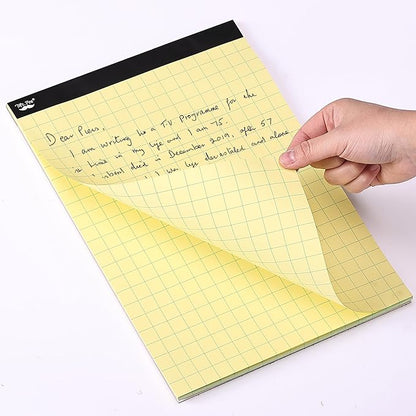 Mr. Pen
Dear Piers,
I am writing to a T.V Programme for the
time in my life and I am 75.
died in December 2019, after 57
I was left devastated and alone